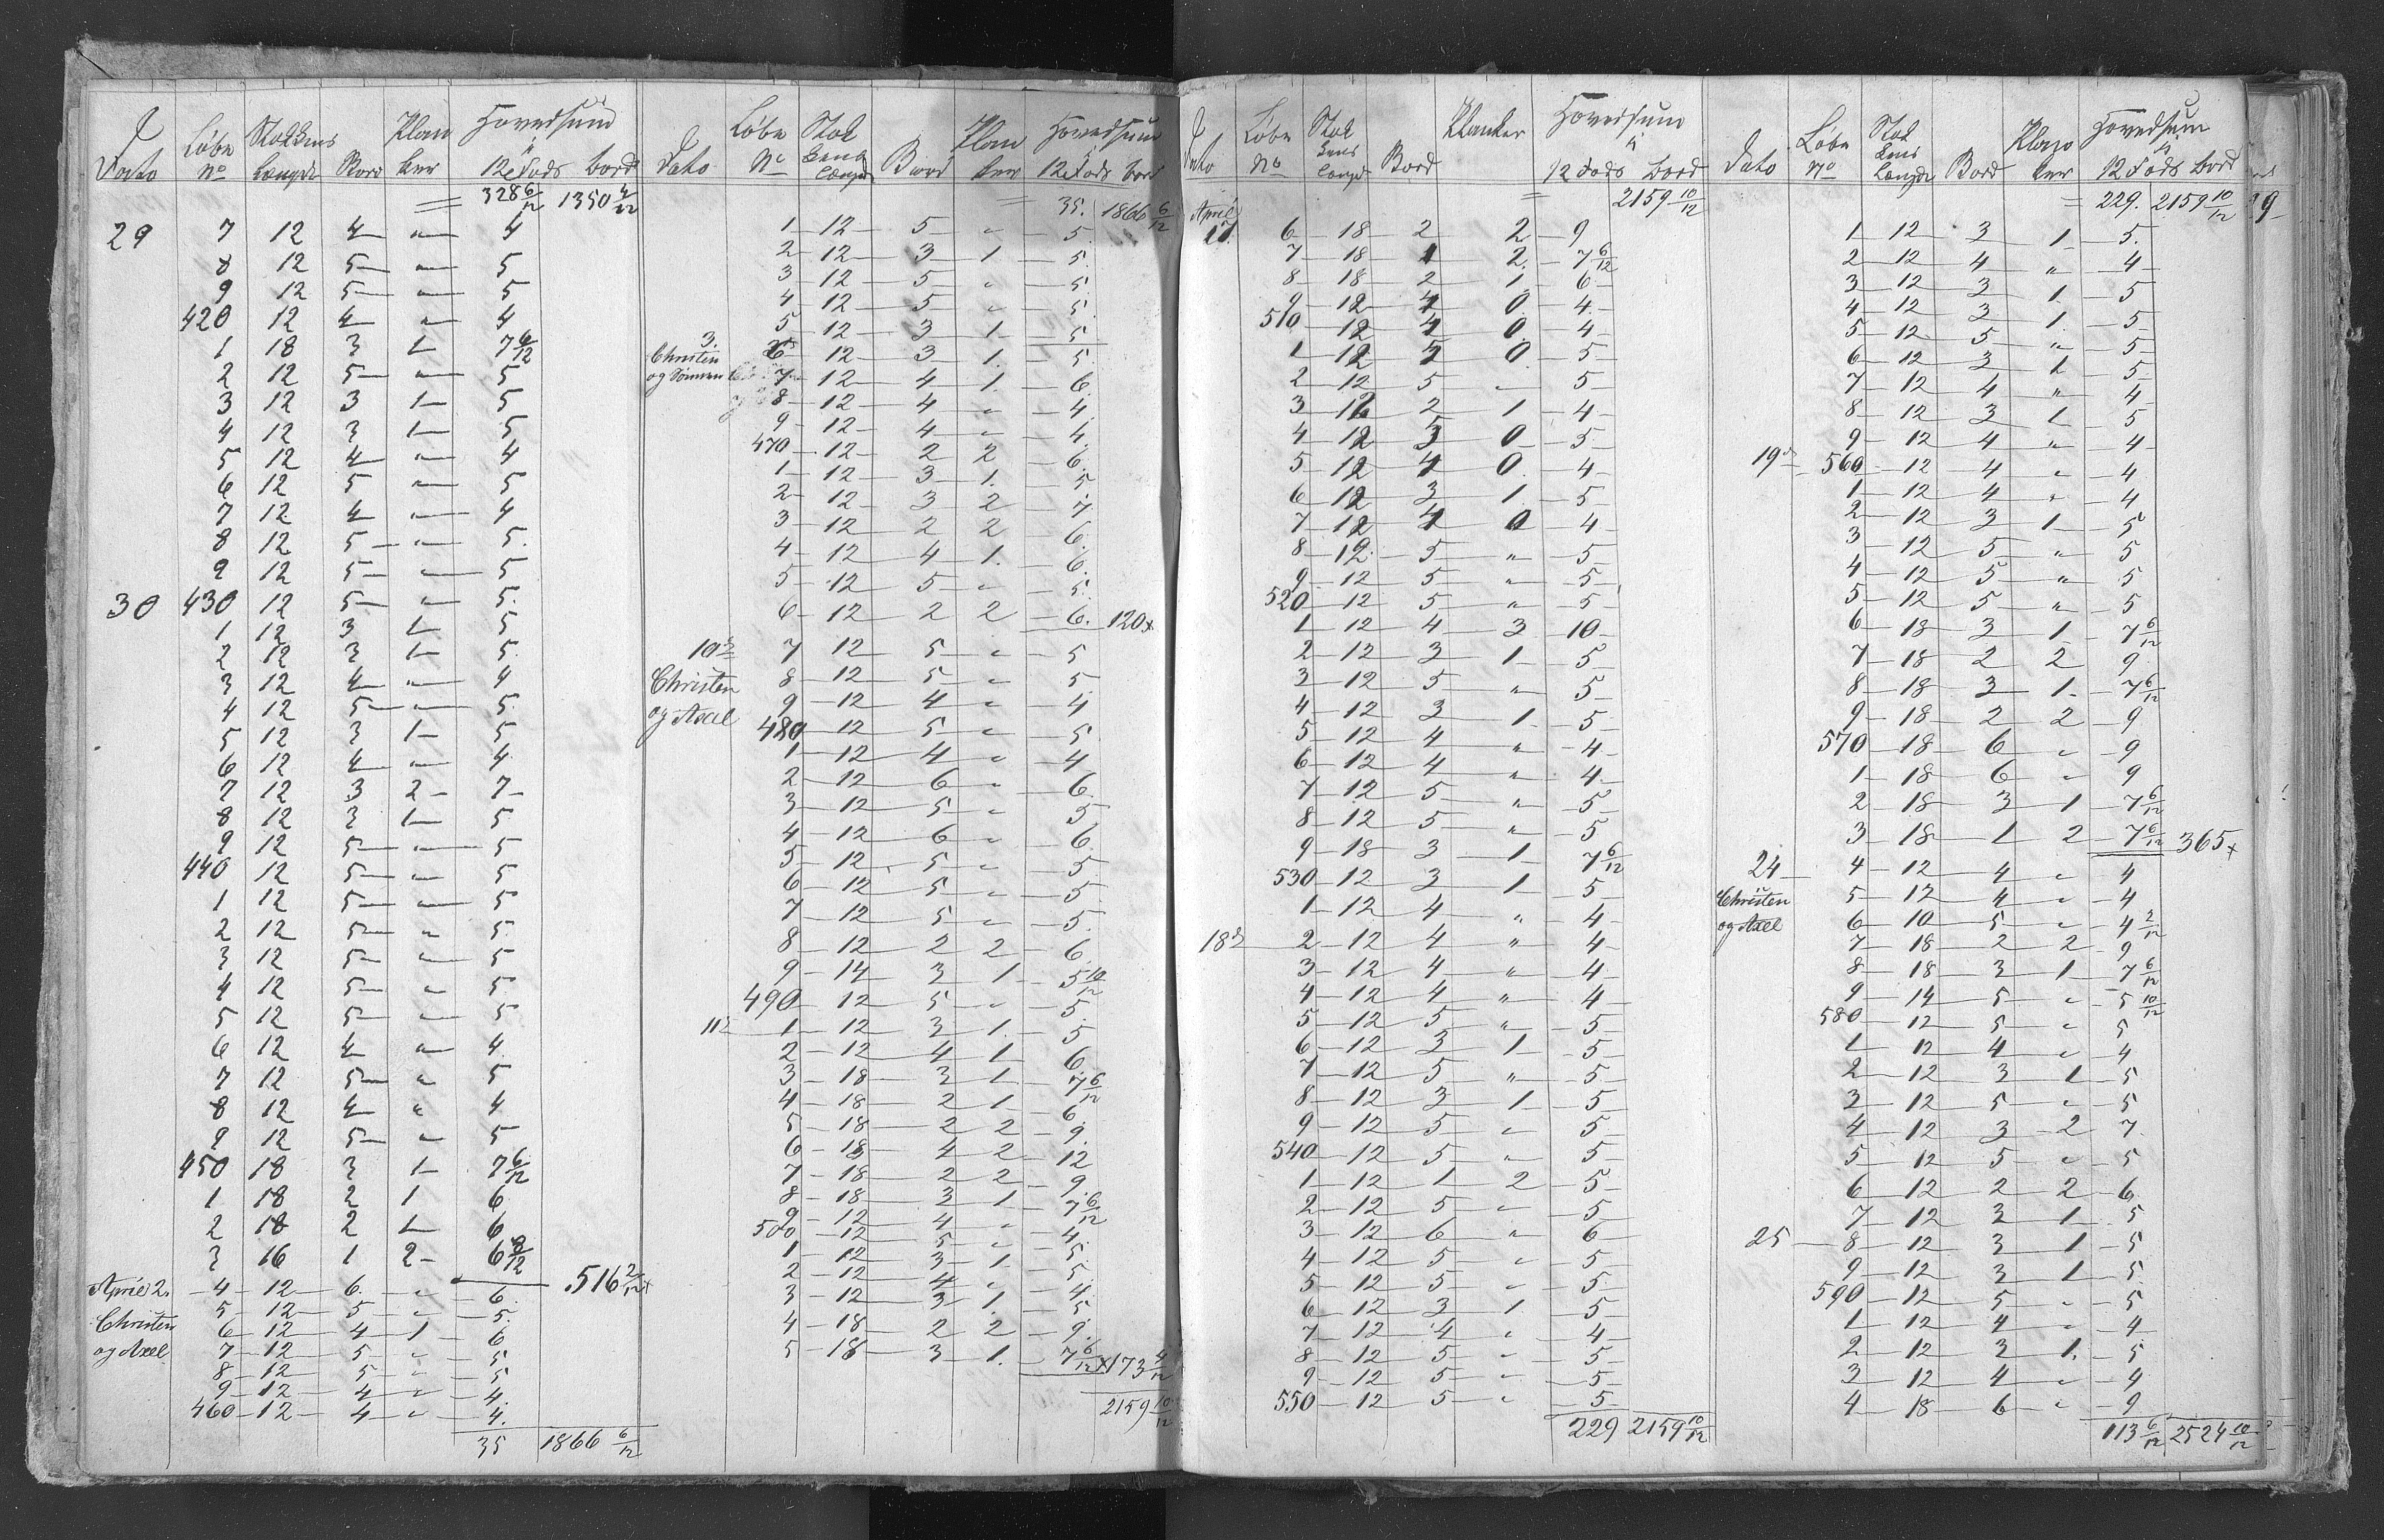 Dato Løbe No Stokkens Længde Bord Planker Hovedsum à 12 Fods bord
= 328 6/12 1350 4/12
29 7 12 4 " 4
8 12 5 " 5
9 12 5 " 5
420 12 4 " 4
1 18 3 1 7 6/12
2 12 5 " 5
3 12 3 1 5
4 12 3 1 5
5 12 4 " 4
6 12 5 " 5
7 12 4 " 4
8 12 5 " 5.
9 12 5 " 5
30 430 12 5 " 5.
1 12 3 1 5
2 12 3 1 5.
3 12 4 " 4
4 12 5 " 5.
5 12 3 1 5
6 12 4 " 4
7 12 3 2 7
8 12 3 1 5
9 12 5 " 5
440 12 5 " 5
1 12 5 " 5
2 12 5 " 5
3 12 5 " 5
4 12 5 " 5
5 12 5 " 5
6 12 4 " 4
7 12 5 " 5
8 12 4 " 4
9 12 5 " 5
450 18 3 1 7 6/12
1 18 2 1 6
2 18 2 1 6
3 16 1 2 6 8/12
516 2/12 x
April 2. 4 12 6 " 6.
Christen 5 12 5 " 5.
6 12 4 1 6
og Axel 7 12 5 " 5
8 12 5 " 5
9 12 4 " 4.
460 12 4 " 4.
35 1866 6/12
Dato Løbe No Stokkens Længde Bord Planker Hovedsum 12 Fods bord
= 35. 1866 6/12
1 12 5 " 5.
2 12 3 1 5.
3 12 5 " 5.
4 12 5 " 5.
5 12 3 1 5
3. 6 12 3 1. 5.
Christen og Sønnen 7 12 4 1. 6.
8 12 4 " 4.
9 12 4 " 4.
470 12 2 2 6.
1 12 3 1. 5
2 12 3 2 7.
3 12 2 2 6.
4 12 4 1. 6.
5 12 5 " 5.
6 12 2 2 6. 120 x
10d 7 12 5 " 5
Christen 8 12 5 " 5
og Axel 9 12 4 " 4
480 12 5 " 5
1 12 4 " 4
2 12 6 " 6.
3 12 5 " 5
4 12 6 " 6
5 12 5 " 5.
6 12 5 " 5
7 12 5 " 5.
8 12 2 2 6.
9 14 3 1 5 10/12
490 12 5 " 5.
11d 1 12 3 1. 5
2 12 4 1 6.
3 18 3 1 7 6/12
4 18 2 1 6.
5 18 2 2 9.
6 18 4 2 12
7 18 2 2 9
8 18 3 1 7 6/12
9 12 4 " 4.
500 12 5 " 5.
1 12 3 1. 5
2 12 4 " 4.
3 12 3 1. 5
4 18 2 2 9.
5 18 3 1. 7 6/12 x 173 4/12
2159 10/12
Dato Løbe No Stokkens Længde Bord Planker Hovedsum à 12 Fods Bord
= 2159 10/12
April
17. 6 18 2 2 9
7 18 1 2. 7 6/12
8 18 2 1 6
9 12 4 0 4
510 12 4 0 4
1 12 5 0 5
2 12 5 " 5
3 12 2 1 4
4 12 5 0 5
5 12 4 0 4
6 12 3 1 5
7 12 4 0 4
8 12 5 " 5
9 12 5 " 5
520 12 5 " 5
1 12 4 3 10
2 12 3 1 5
3 12 5 " 5
4 12 3 1 5
5 12 4 " 4
6 12 4 " 4
7 12 5 " 5
8 12 5 " 5
9 18 3 1 7 6/12
530 12 3 1 5
1 12 4 " 4
18d 2 12 4 " 4
3 12 4 " 4
4 12 4 " 4
5 12 5 " 5
6 12 3 1 5
7 12 5 " 5
8 12 3 1 5
9 12 5 " 5
540 12 5 " 5
1 12 1 2 5
2 12 5 " 5
3 12 6 " 6
4 12 5 " 5
5 12 5 " 5
6 12 3 1 5
7 12 4 " 4
8 12 5 " 5
9 12 5 " 5
550 12 5 " 5
229 2159 10/12
Dato Løbe No Stokkens Længde Bord Planker Hovedsum à 12 Fods Bord
= 229. 2159 10/12
1 12 3 1 5.
2 12 4 " 4
3 12 3 1. 5
4 12 3 1. 5
5 12 5 " 5
6 12 3 1 5
7 12 4 " 4
8 12 3 1 5
9 12 4 " 4
19d 560 12 4 " 4
1 12 4 " 4
2 12 3 1 5
3 12 5 " 5
4 12 5 " 5
5 12 5 " 5
6 18 3 1 7 6/12
7 18 2 2 9
8 18 3 1 7 6/12
9 18 2 2 9
570 18 6 " 9
1 18 6 " 9
2 18 3 1 7 6/12
3 18 1 2 7 6/12 365 x
24 4 12 4 " 4
Christen 5 12 4 " 4
og Axel 6 10 5 " 4 2/12
7 18 2 2 9
8 18 3 1 7 6/12
9 14 5 " 5 10/12
580 12 5 " 5
1 12 4 " 4
2 12 3 1 5
3 12 5 " 5
4 12 3 2 7
5 12 5 " 5
6 12 2 2 6
7 12 3 1 5
25 8 12 3 1 5
9 12 3 1 5
590 12 5 " 5
1 12 4 " 4
2 12 3 1. 5
3 12 4 " 4
4 18 6 " 9
113 6/12 2524 10/12